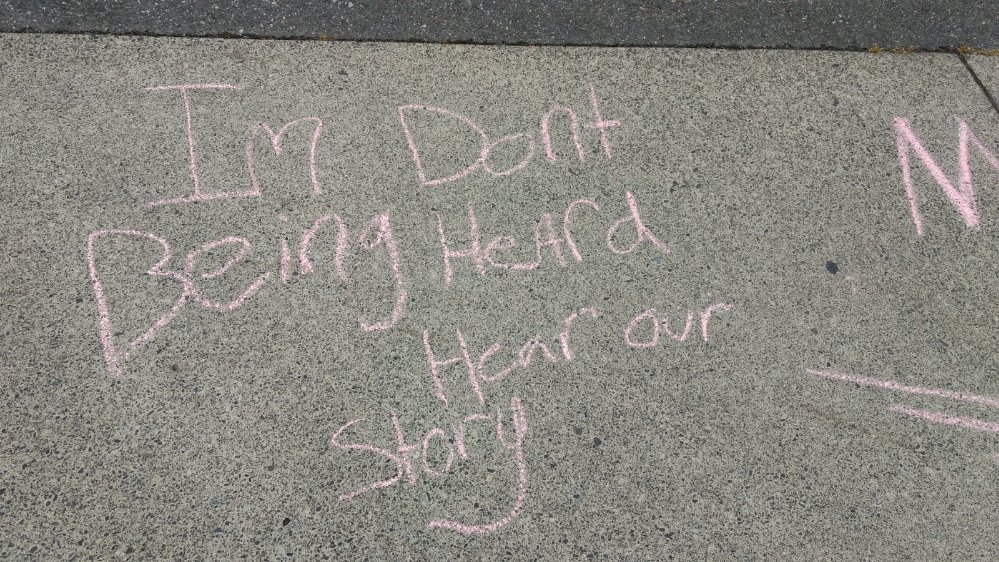 Im Dont
Being HeArd
Hear our
Story
M